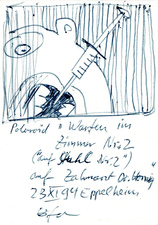 Polaroid "Warten im
Zimmer Nr. 2
(auf Stuhl Nr. 2")
auf Zahnarzt Dr.
23 XI 94 Eppelheim